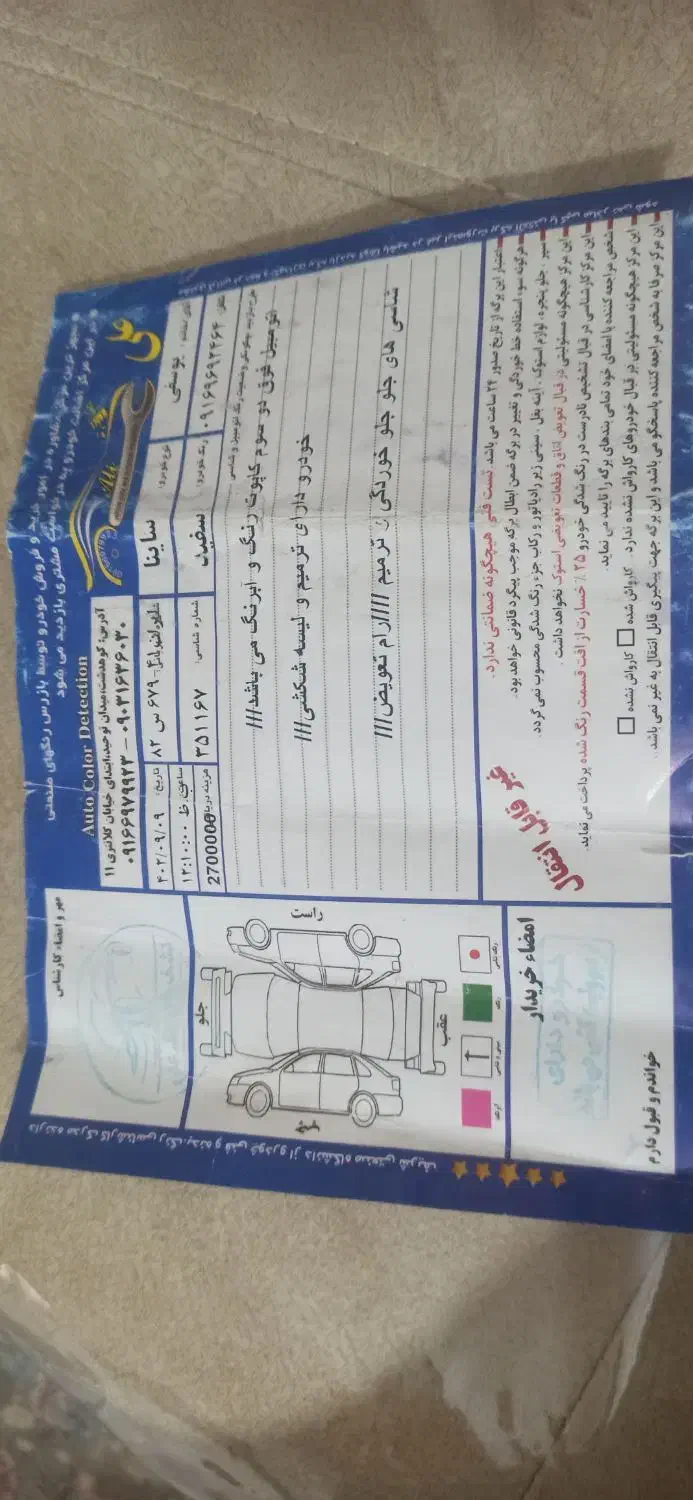 علی
Auto Color Detection
آدرس: کوهدشت،میدان توحید،ابتدای خیابان کلانتری ۱۱
۰۹۱۶۶۹۷۹۹۲۳ – ۰۹۰۳۱۶۴۶۰۳۰
یوسفی
نوع خودرو:
ساینا
۶۷۹ س ۸۲
تاریخ:
۴۰۲/۰۹/۰۹
تلفن:
۰۹۱۶۹۶۹۲۴۶۴
رنگ خودرو:
سفید
شماره شاسی:
۳۵۱۱۶۷
ساعت:
۱۲:۱۰:۰۰ ظ
2700000
اتومبیل فوق دو سوم کاپوت رنگ و ابرنگ می باشد///
خودرو دارای ترمیم و لیسه شکشی///
شاسی های جلو جلو خوردگی و ترمیم ////رام تعویض///
اعتبار این برگه از تاریخ صدور ۲۴ ساعت می باشد. تست فنی هیچگونه ضمانتی ندارد.
هرگونه سوء استفاده خط خوردگی و تغییر در برگه ضمن ابطال برگه موجب پیگرد قانونی خواهد بود.
سپر، جلو پنجره، لوازم استوک، آینه بغل، سینی زیر رادیاتور و رکاب جزء رنگ شدگی محسوب نمی گردد.
این مرکز هیچگونه مسئولیتی در قبال تعویض اتاق و قطعات تعویضی استوک نخواهد داشت.
این مرکز کارشناسی در قبال تشخیص نادرست در رنگ شدگی خودرو ۲۵ ٪ خسارت از افت قسمت رنگ شده پرداخت می نماید.
شخص مراجعه کننده با امضای خود تمامی بندهای برگه را تایید می نماید.
این مرکز هیچگونه مسئولیتی در قبال خودروهای کارواش نشده ندارد. کارواش شده کارواش نشده
این مرکز صرفا به شخص مراجعه کننده پاسخگو می باشد و این برگه جهت پیگیری قابل انتقال به غیر نمی باشد.
غیر قابل انتقال
مهر و امضاء کارشناس
راست
جلو
عقب
چپ
امضاء خریدار
خواندم و قبول دارم